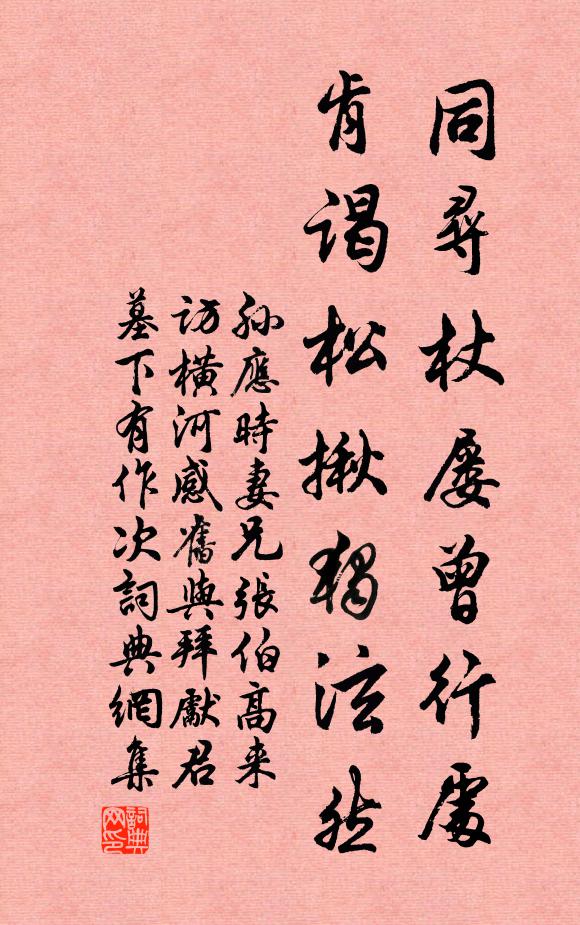 同尋杖屨曾行處
肯謁松楸獨泫然
孫應時妻兄張伯高来
訪橫河感舊與拜獻君
墓下有作次詞典網集
詞典网印